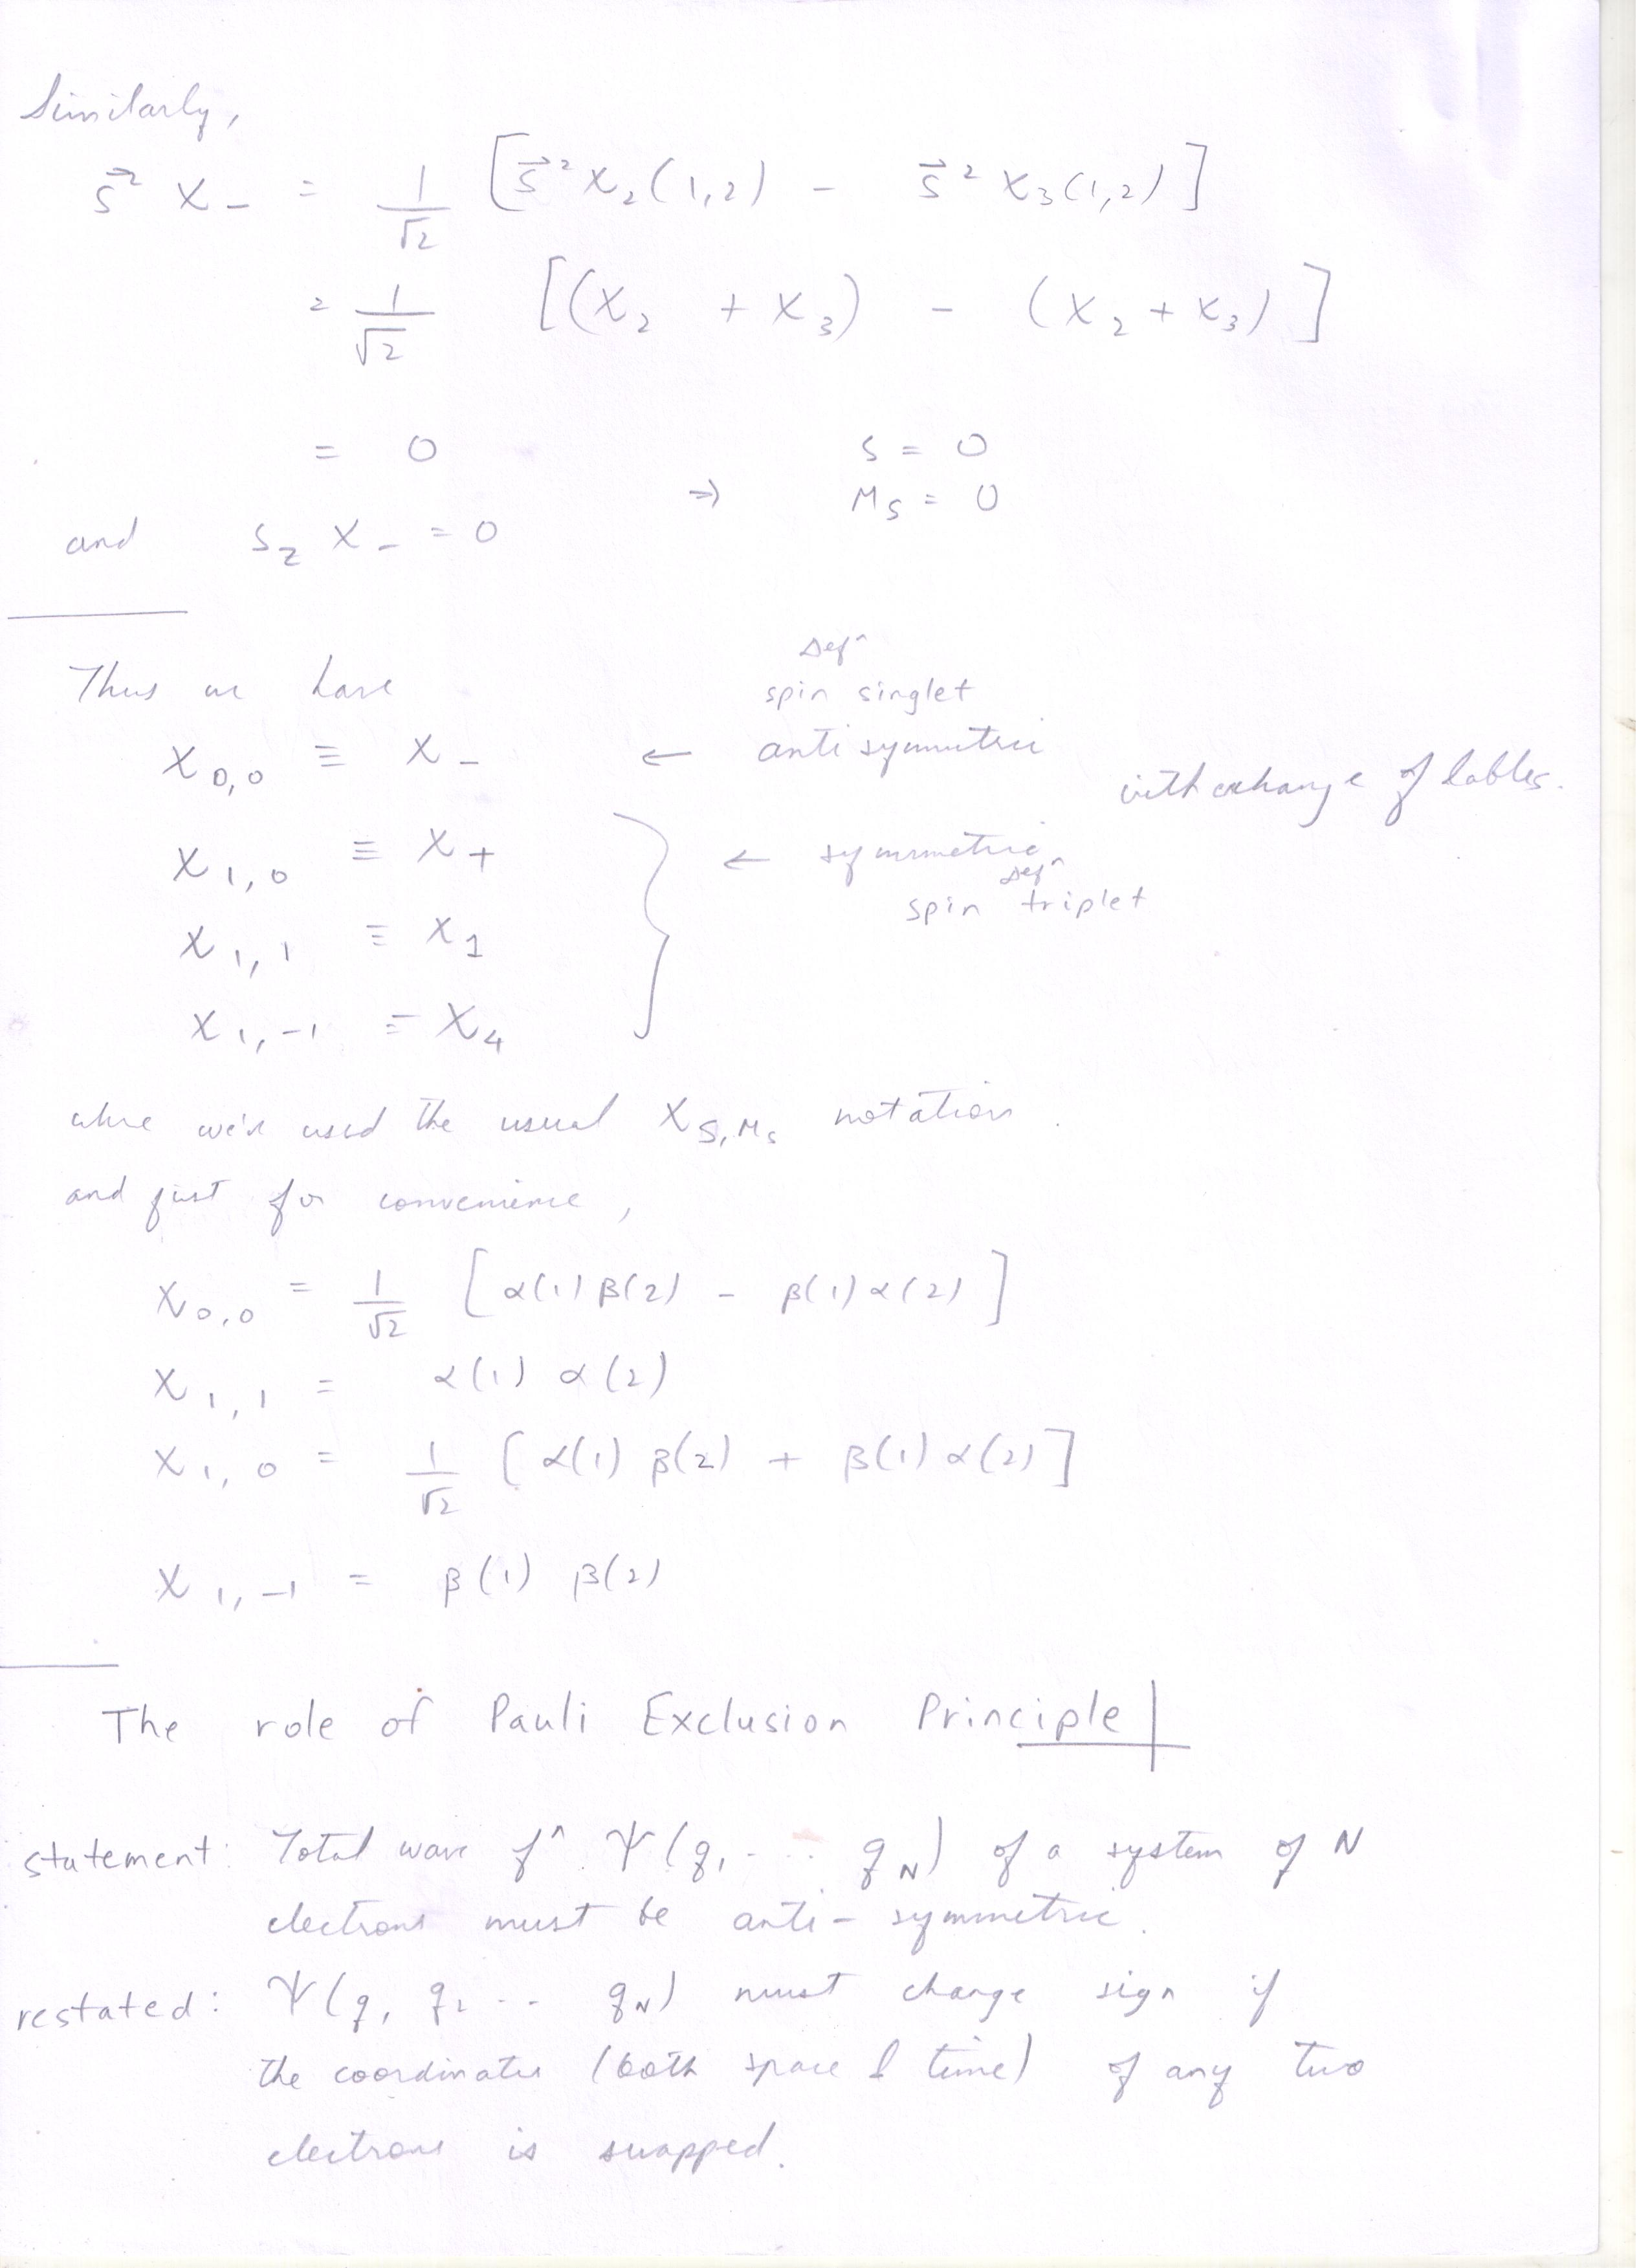 Similarly,
S⃗² χ₋ = 1/√2 [S⃗² χ₂(1,2) - S⃗² χ₃(1,2)]
= 1/√2 [(χ₂ + χ₃) - (χ₂ + χ₃)]
= 0 S = 0
⇒ M_S = 0
and S_z χ₋ = 0
defⁿ
Thus we have spin singlet
χ₀,₀ ≡ χ₋ ← anti symmetric
with exchange of lables.
χ₁,₀ ≡ χ₊ ← symmetric
defⁿ
spin triplet
χ₁,₁ ≡ χ₁
χ₁,₋₁ = χ₄
where we've used the usual χ_S,M_S notation.
and just for convenience,
χ₀,₀ = 1/√2 [α(1) β(2) - β(1) α(2)]
χ₁,₁ = α(1) α(2)
χ₁,₀ = 1/√2 [α(1) β(2) + β(1) α(2)]
χ₁,₋₁ = β(1) β(2)
The role of Pauli Exclusion Principle
statement: Total wave fⁿ. Ψ(q₁ - .. q_N) of a system of N
electrons must be anti-symmetric.
restated: Ψ(q₁ q₂ -.. q_N) must change sign if
the coordinates (both space & time) of any two
electrons is swapped.